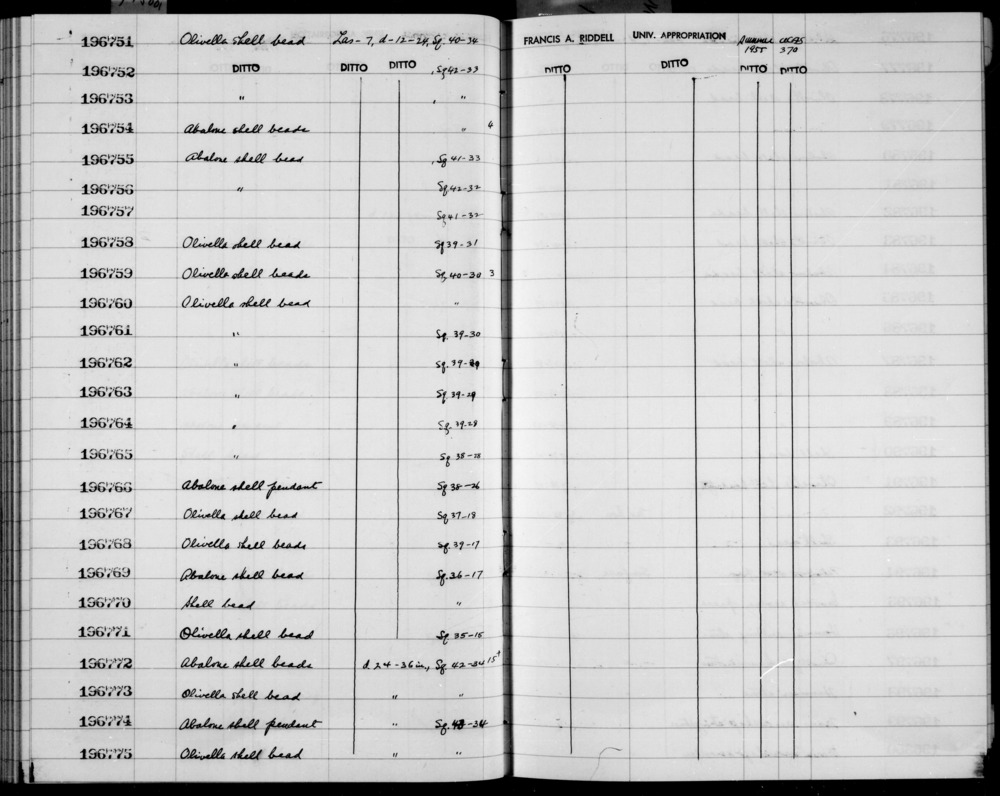 196751 Olivella shell bead Las-7, d-12-24, Sq. 40-34 FRANCIS A. RIDDELL UNIV. APPROPRIATION Summer 1955 UCAS 370
196752 DITTO DITTO DITTO , Sq 42-33 DITTO DITTO DITTO DITTO
196753 " , "
196754 Abalone shell beads " 4
196755 Abalone shell bead , Sq 41-33
196756 " Sq 42-32
196757 Sq 41-32
196758 Olivella shell bead Sq 39-31
196759 Olivella shell beads Sq. 40-30 3
196760 Olivella shell bead "
196761 " Sq. 39-30
196762 " Sq. 39-
196763 " Sq. 39-29
196764 " Sq. 39-28
196765 " Sq 38-28
196766 Abalone shell pendant Sq 38-26
196767 Olivella shell bead Sq 37-18
196768 Olivella shell beads Sq. 39-17
196769 Abalone shell bead Sq. 36-17
196770 Shell bead "
196771 Olivella shell bead Sq 35-15
196772 Abalone shell beads d 24-36 in., Sq. 42-34 15+
196773 Olivella shell bead " "
196774 Abalone shell pendant " Sq. 43-34
196775 Olivella shell bead " "